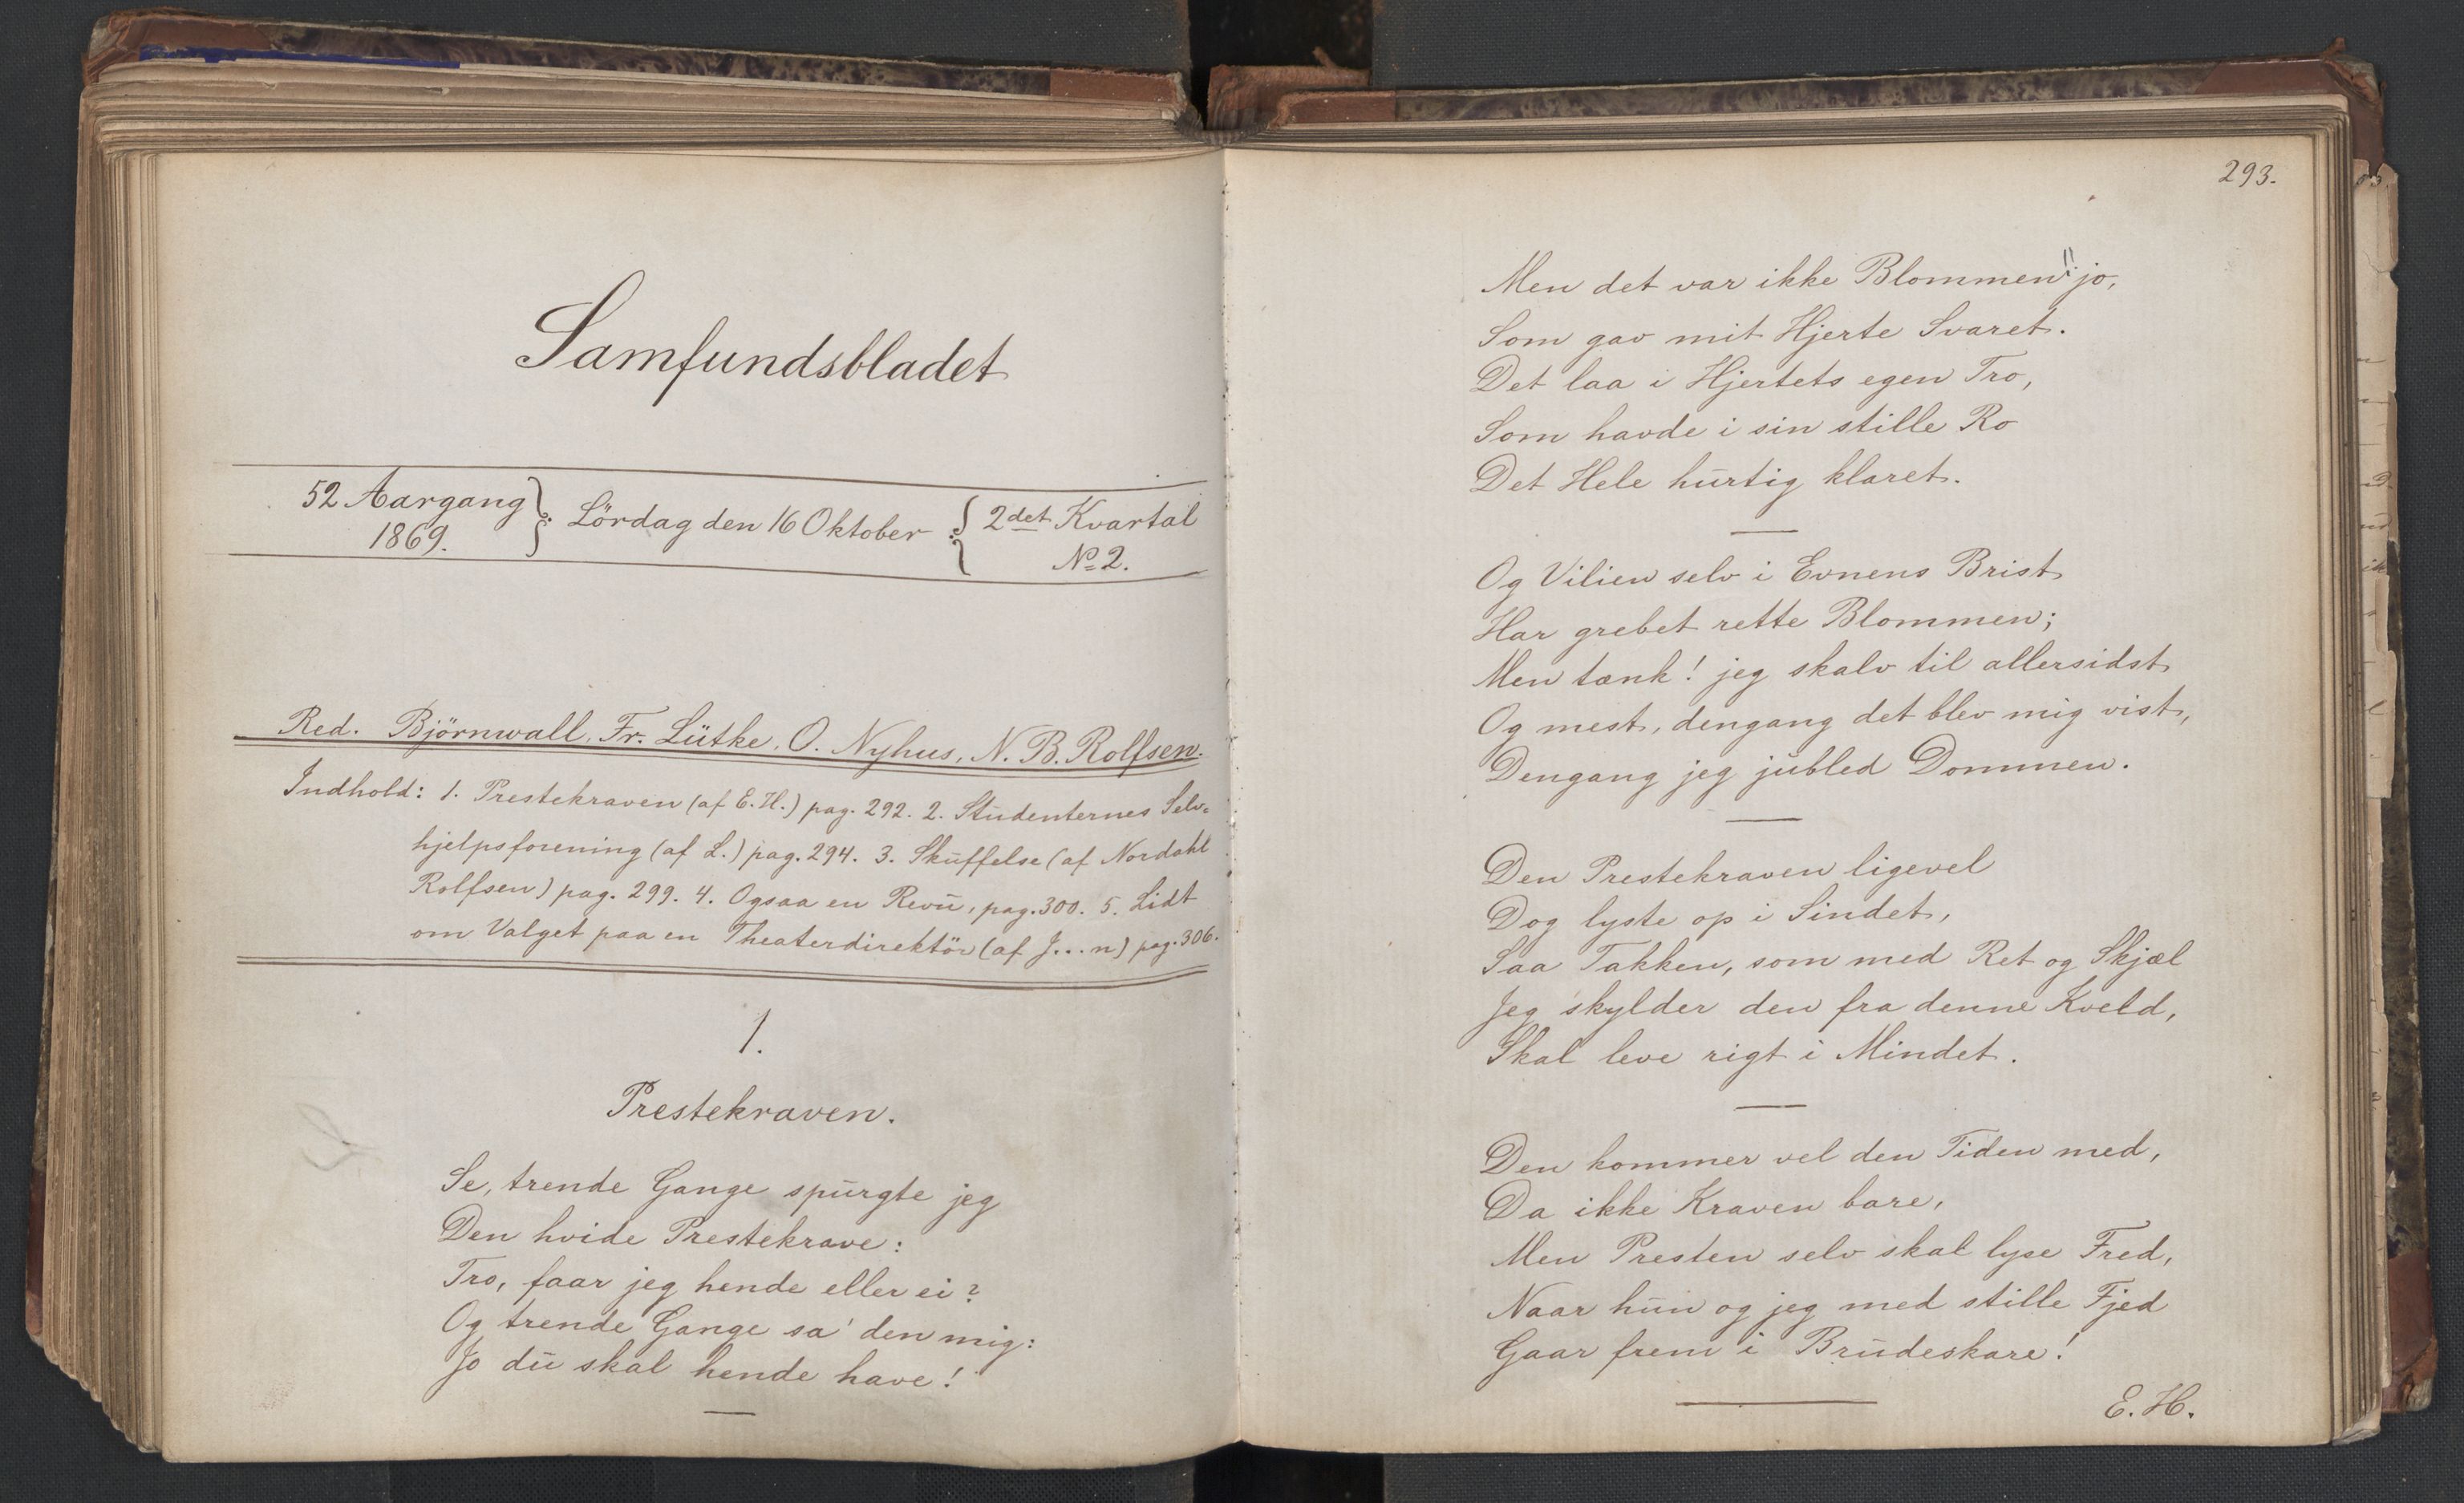 Samfundsbladet
52 Aargang
1869.
Lördag den 16 Oktober
2det Kvartal
No 2.
Red. Björnwall, Fr. Lütke, O. Nyhus, N. B. Rolfsen.
Indhold: 1. Prestekraven (af E. H.) pag. 292. 2. Studenternes Selv-
hjelpsforening (af L.) pag. 294. 3. Skuffelse (af Nordahl
Rolfsen) pag. 299. 4. Ogsaa en Revu, pag. 300. 5. Lidt
om Valget paa en Theaterdirektör (af J...n) pag. 306.
1.
Prestekraven.
Se, trende Gange spurgte jeg
Den hvide Prestekrave:
Tro, faar jeg hende eller ei?
Og trende Gange sa' den mig:
Jo du skal hende have!
293.
Men det var ikke Blommen" jo,
Som gav mit Hjerte Svaret.
Det laa i Hjertets egen Tro,
Som havde i sin stille Ro
Det Hele hurtig klaret.
Og Vilien selv i Evnens Brist
Har grebet rette Blommen;
Men tænk! jeg skalv til allersidst
Og mest, dengang det blev mig vist,
Dengang jeg jubled Dommen.
Den Prestekraven ligevel
Dog lyste op i Sindet,
Saa Takken, som med Ret og Skjæl
Jeg skylder den fra denne Kveld,
Skal leve rigt i Mindet.
Den kommer vel den Tiden med,
Da ikke Kraven bare,
Men Presten selv skal lyse Fred,
Naar hun og jeg med stille Fjed
Gaar frem i Brudeskare!
E. H.